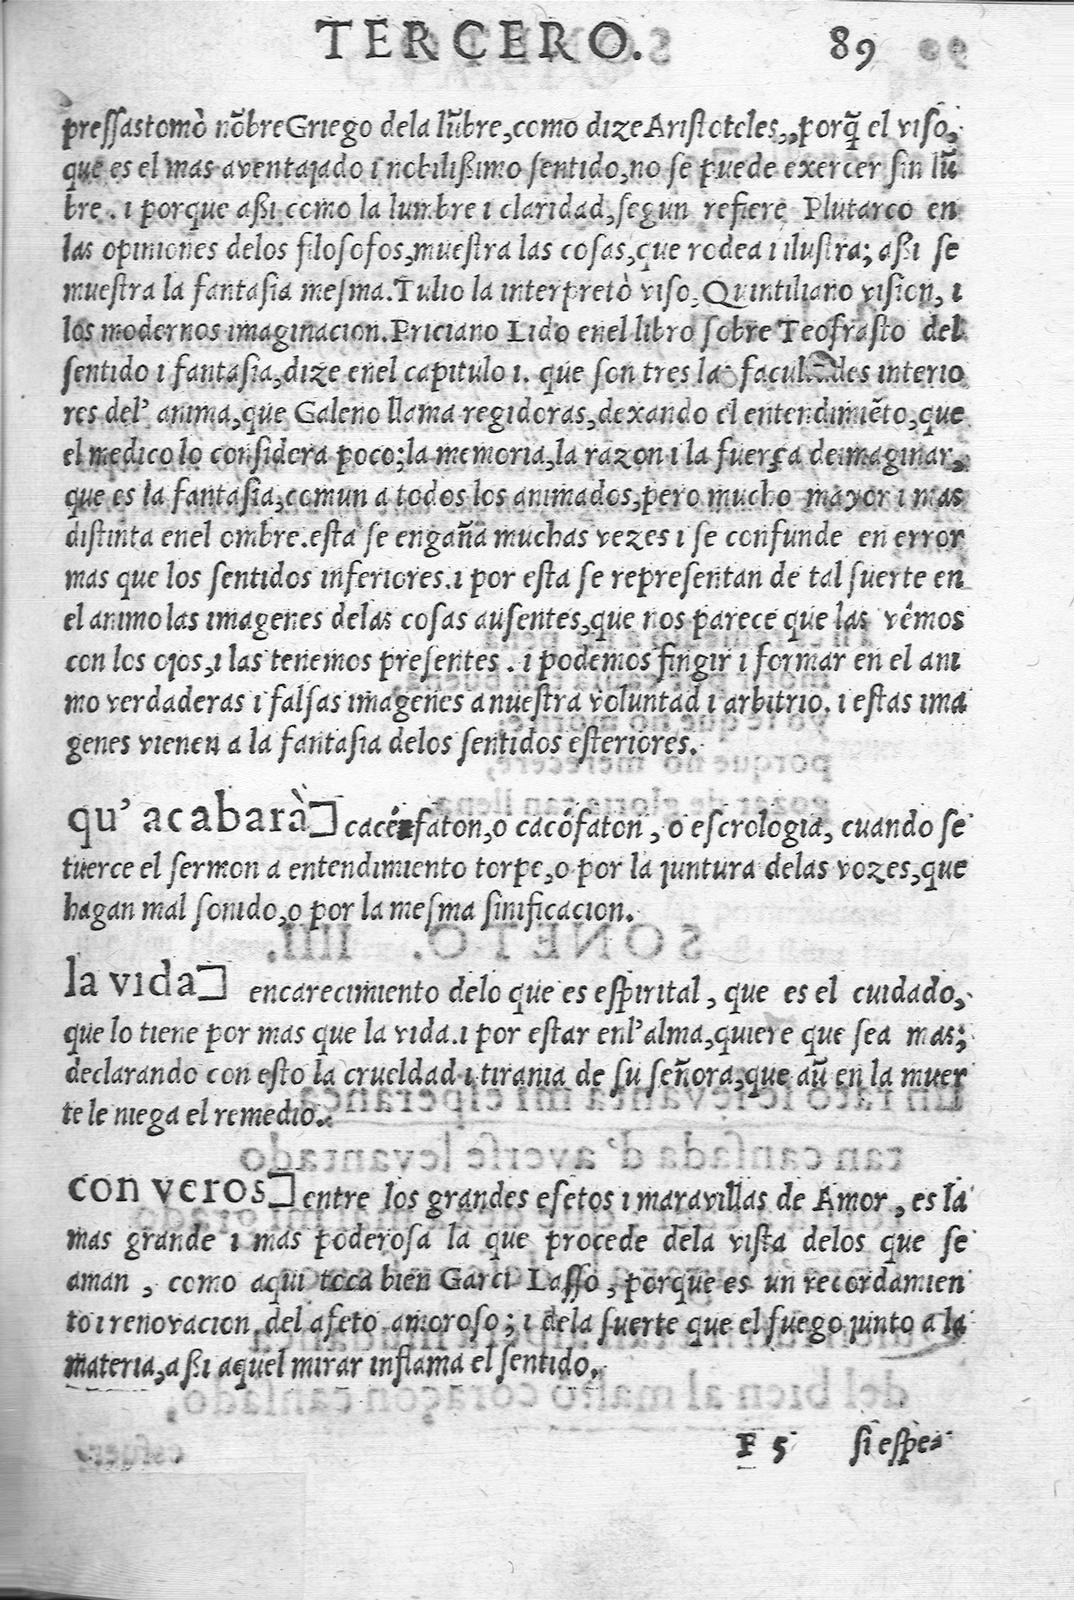 TERCERO. 89
pressas tomò nõbre Griego dela lũbre, como dize Aristoteles,, porq̃ el viso,
que es el mas aventajado i nobilißimo sentido, no se puede exercer sin lũ
bre. i porque aßi como la lumbre i claridad, segun refiere Plutarco en
las opiniones delos filosofos, muestra las cosas, que rodea i ilustra; aßi se
muestra la fantasia mesma. Tulio la interpretò viso, Quintiliano vision, i
los modernos imaginacion. Priciano Lido enel libro sobre Teofrasto del
sentido i fantasia, dize enel capitulo 1. que son tres las facultades interio
res del' anima, que Galeno llama regidoras, dexando el entendimiẽto, que
el medico lo considera poco; la memoria, la razon i la fuerça de imaginar,
que es la fantasia, comun a todos los animados, pero mucho mayor i mas
distinta enel ombre. esta se engaña muchas vezes i se confunde en error
mas que los sentidos inferiores. i por esta se representan de tal suerte en
el animo las imagenes delas cosas ausentes, que nos parece que las vémos
con los ojos, i las tenemos presentes. i podemos fingir i formar en el ani
mo verdaderas i falsas imagenes a nuestra voluntad i arbitrio. i estas ima
genes vienen a la fantasia delos sentidos esteriores.
qu' acabarà] cacénfaton, o cacófaton, o escrologia, cuando se
tuerce el sermon a entendimiento torpe, o por la juntura delas vozes, que
hagan mal sonido, o por la mesma sinificacion.
la vida] encarecimiento delo que es espirital, que es el cuidado,
que lo tiene por mas que la vida. i por estar enl' alma, quiere que sea mas;
declarando con esto la crueldad i tirania de su señora, que aũ en la muer
te le niega el remedio.
con veros] entre los grandes efetos i maravillas de Amor, es la
mas grande i mas poderosa la que procede dela vista delos que se
aman, como aqui toca bien Garci Lasso, porque es un recordamien
to i renovacion del afeto amoroso; i dela suerte que el fuego junto a la
materia, aßi aquel mirar inflama el sentido.
F 5 si espe-